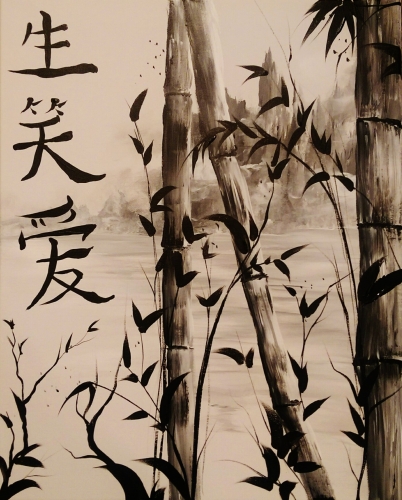 生
笑
爱